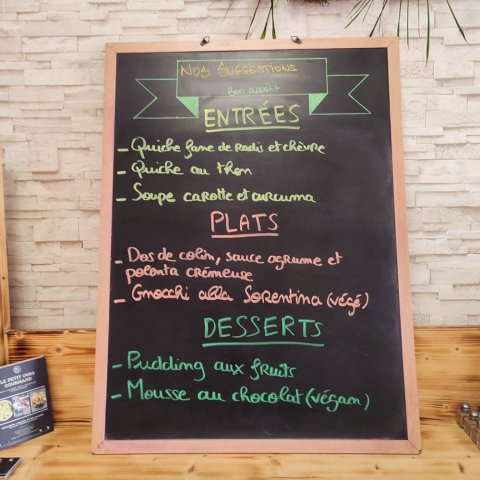 Nos Suggestions
Bon appétit
ENTRÉES
- Quiche fane de radis et chèvre
- Quiche au thon
- Soupe carotte et curcuma
PLATS
- Dos de colin, sauce agrume et
polenta crémeuse
- Gnocchi alla Sorentina (végé)
DESSERTS
- Pudding aux fruits
- Mousse au chocolat (végan)
LE PETIT OURS
GOURMAND